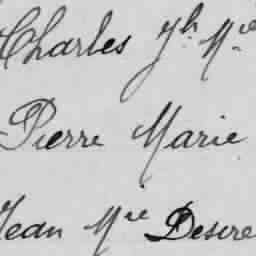 Charles Jh Mie
Pierre Marie
Jean Mie Desire